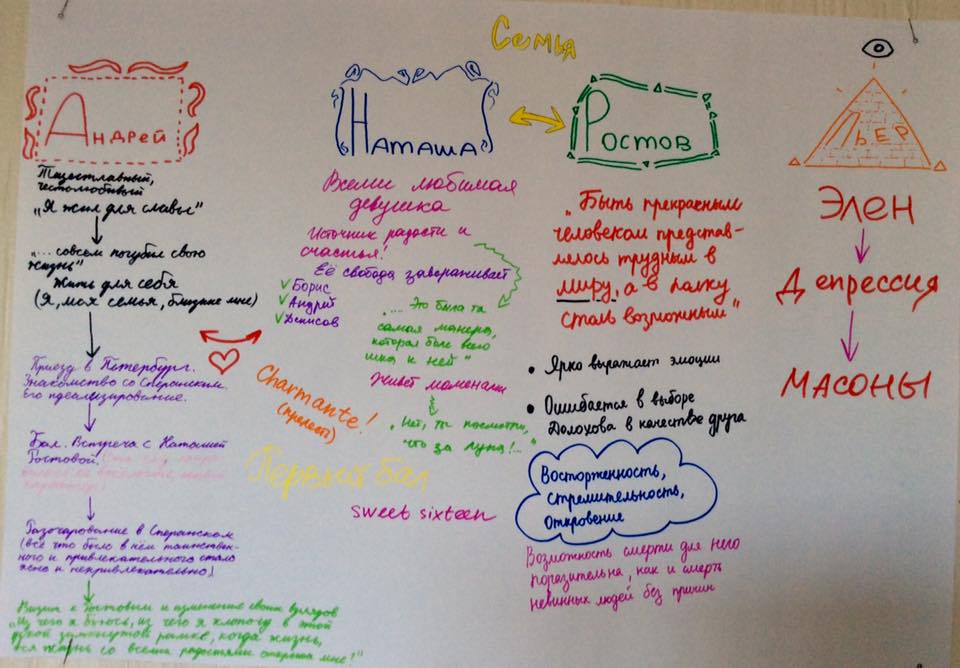 Семья
Андрей
Тщеславный,
честолюбивый
„Я жил для славы"
„... совсем погубил свою
жизнь"
Жить для себя
(Я, моя семья, близкие мне)
Приезд в Петербург.
Знакомство со Сперанским.
Его идеализирование.
Бал. Встреча с Наташей
Ростовой.
Разочарование в Сперанском
(всё что было в нём таинствен-
ного и привлекательного стало
ясно и непривлекательно)
Визит к Ростовым и изменение своих взглядов
„Из чего я бьюсь, из чего я хлопочу в этой
узкой замкнутой рамке, когда жизнь,
вся жизнь со всеми радостями открыта мне!"
Наташа
Всеми любимая
девушка
Источник радости и
счастья!
Её свобода завораживает
✓ Борис
✓ Андрей
✓ Денисов
„... Это была та
самая манера,
которая более всего
шла к ней"
Живёт моментами
„Нет, ты посмотри,
что за луна!.."
Charmante!
(прелест)
Первый бал
sweet sixteen
Ростов
„Быть прекрасным
человеком представ-
лялось трудным в
миру, а в полку
стало возможным"
• Ярко выражает эмоции
• Ошибается в выборе
Долохова в качестве друга
Восторженность,
Стремительность,
Откровение
Возможность смерти для него
поразительна, как и смерть
невинных людей без причин
Пьер
Элен
Депрессия
Масоны